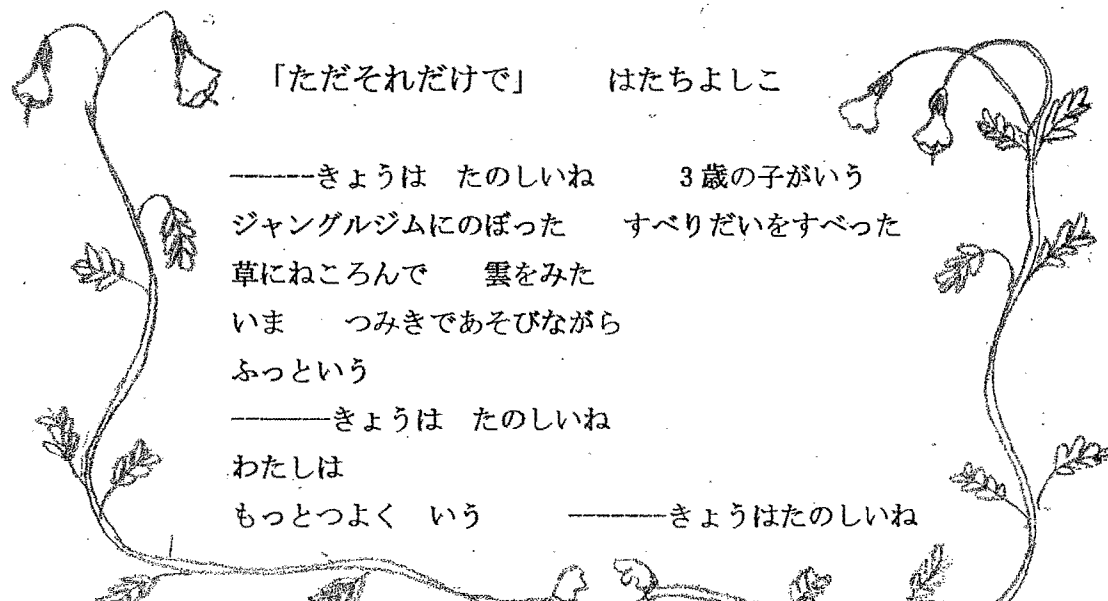 「ただそれだけで」　　はたちよしこ
――――きょうは　たのしいね　　　3歳の子がいう
ジャングルジムにのぼった　　すべりだいをすべった
草にねころんで　　雲をみた
いま　　つみきであそびながら
ふっという
――――きょうは　たのしいね
わたしは
もっとつよく　いう　　　――――きょうはたのしいね